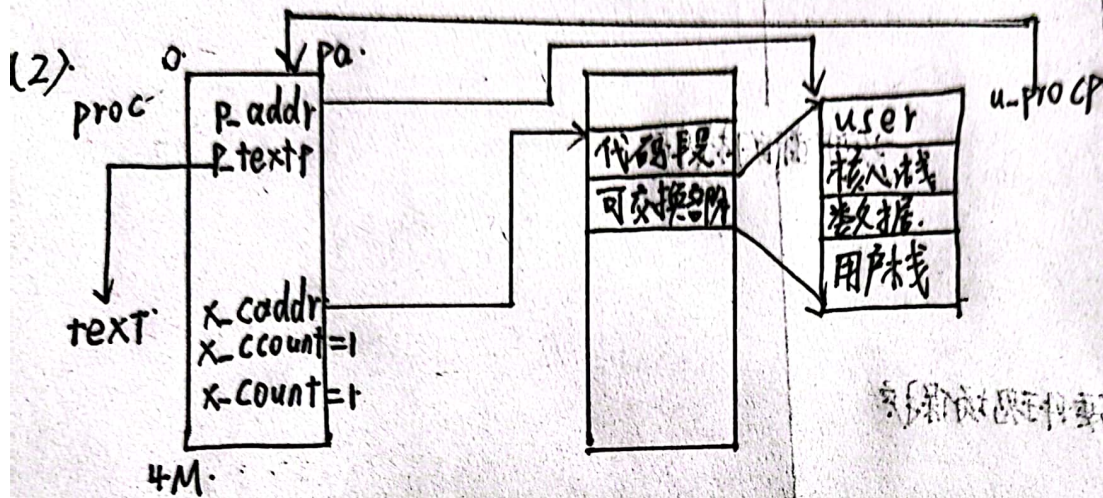 (2).
0.
Pa.
proc
p_addr
p_textp
text
x_caddr
x_ccount=1
x_count=1
4M.
代码段
可交换部分
u_procp
user
核心栈
数据.
用户栈